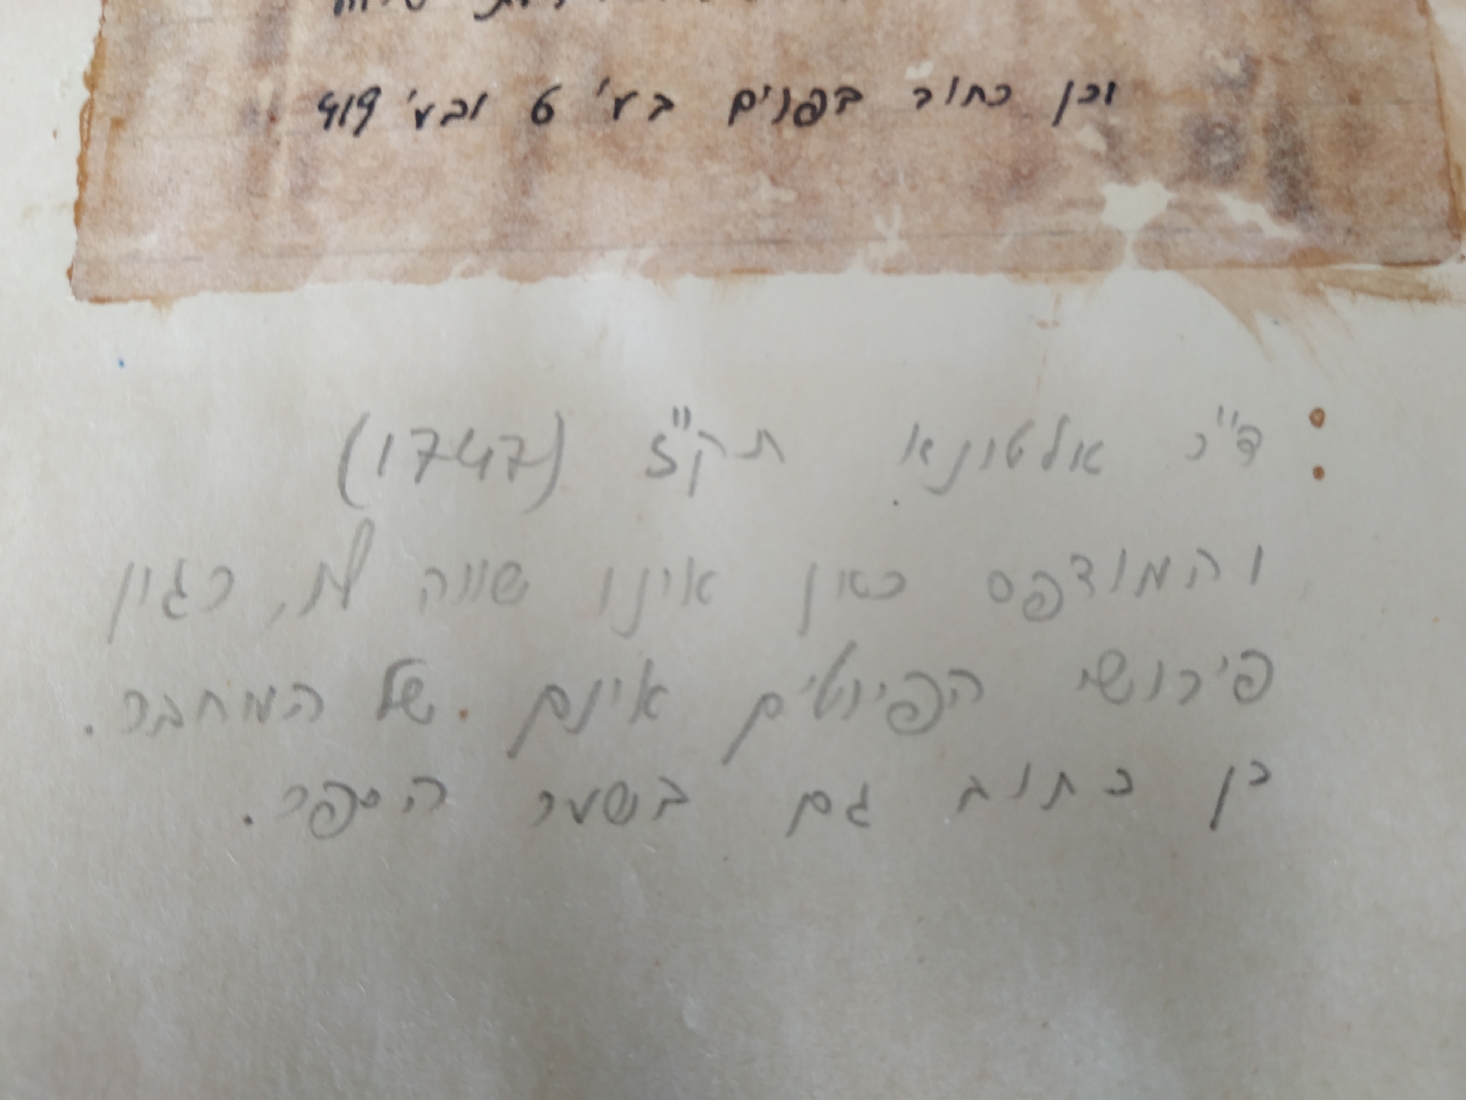 וכן כתוב בפנים בע' 6 ובע' 419
ד"ר אלטונא תק"ז (1747)
והמודפס כאן אינו שווה לו, כגון
פירושי הפיוטים אינם של המחבר.
כן כתוב גם בשער הספר.